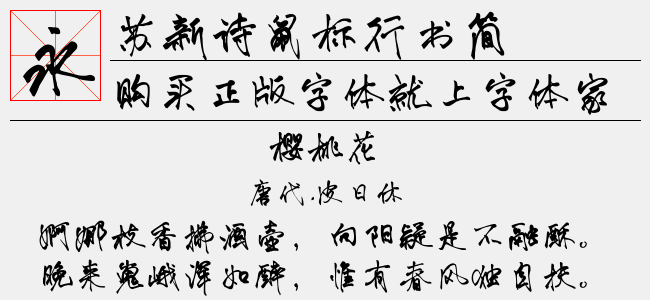 永
苏新诗鼠标行书简
购买正版字体就上字体家
樱桃花
唐代.皮日休
婀娜枝香拂酒壶，向阳疑是不融酥。
晚来嵬峨浑如醉，惟有春风独自扶。